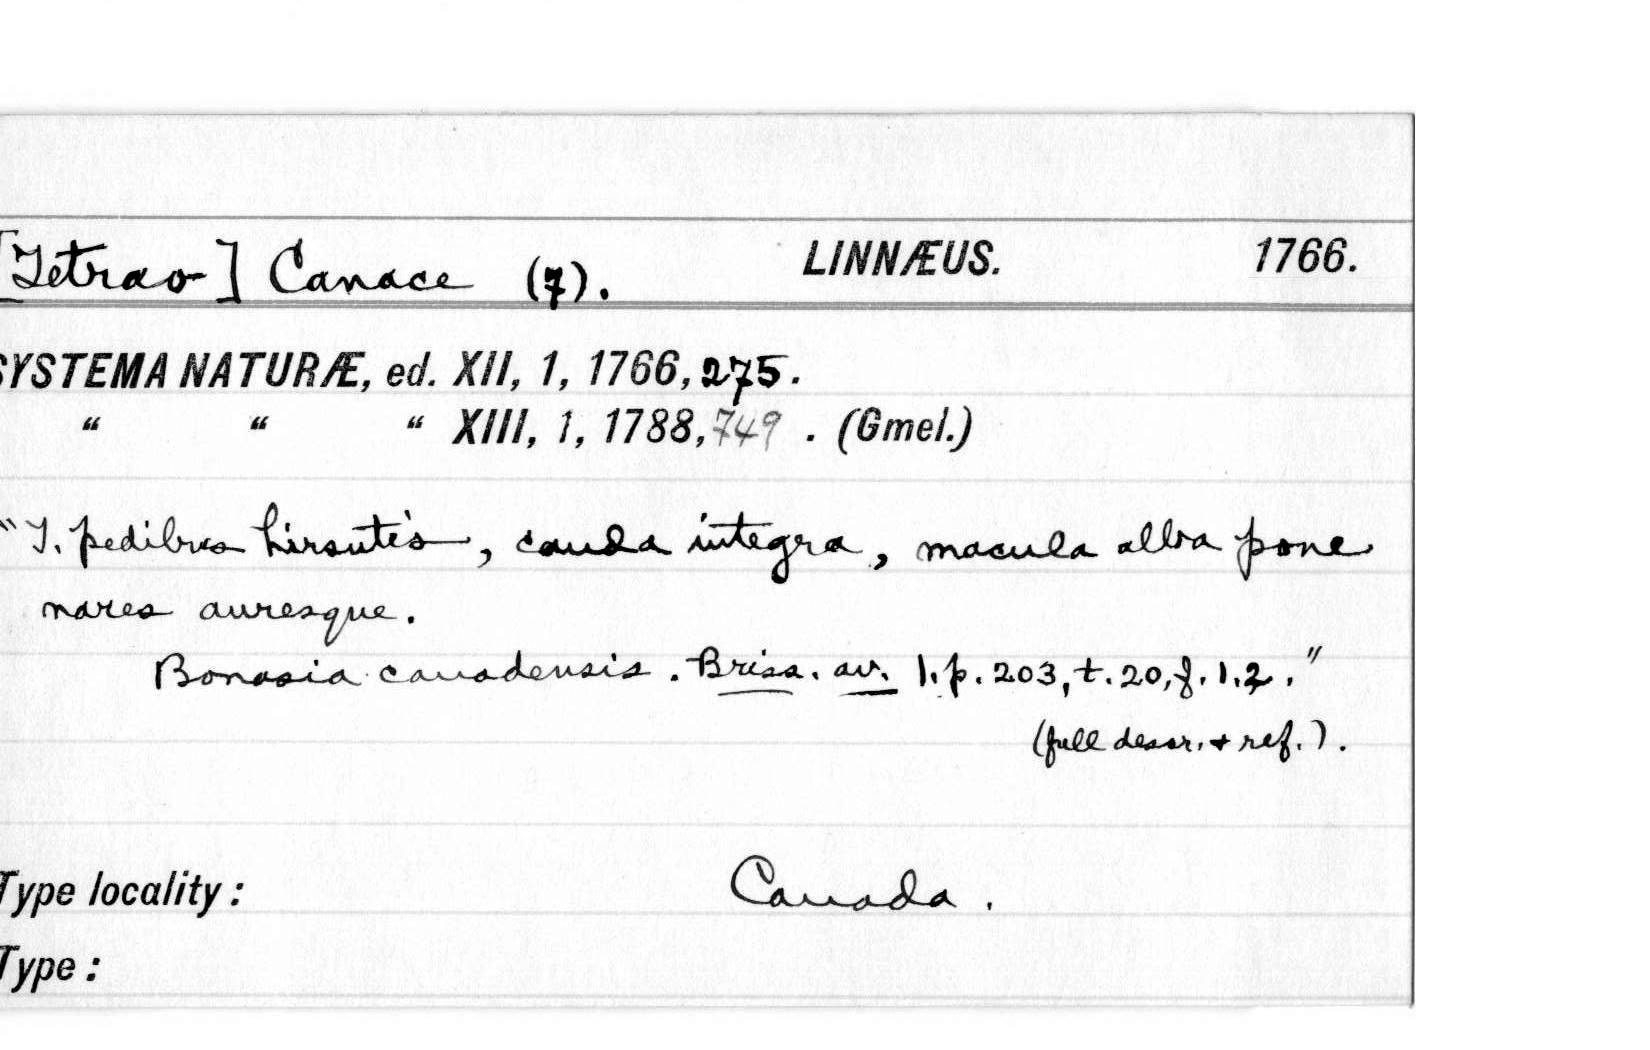 [Tetrao] Canace (7). LINNÆUS. 1766.
SYSTEMA NATURÆ, ed. XII, 1, 1766, 275.
“ “ “ XIII, 1, 1788, 749 . (Gmel.)
"T. pedibus hirsutis, cauda integra, macula alba pone
nares auresque.
Bonasia canadensis. Briss. av. 1. p. 203, t. 20, f. 1.2."
(full descr. + ref.).
Type locality: Canada.
Type: